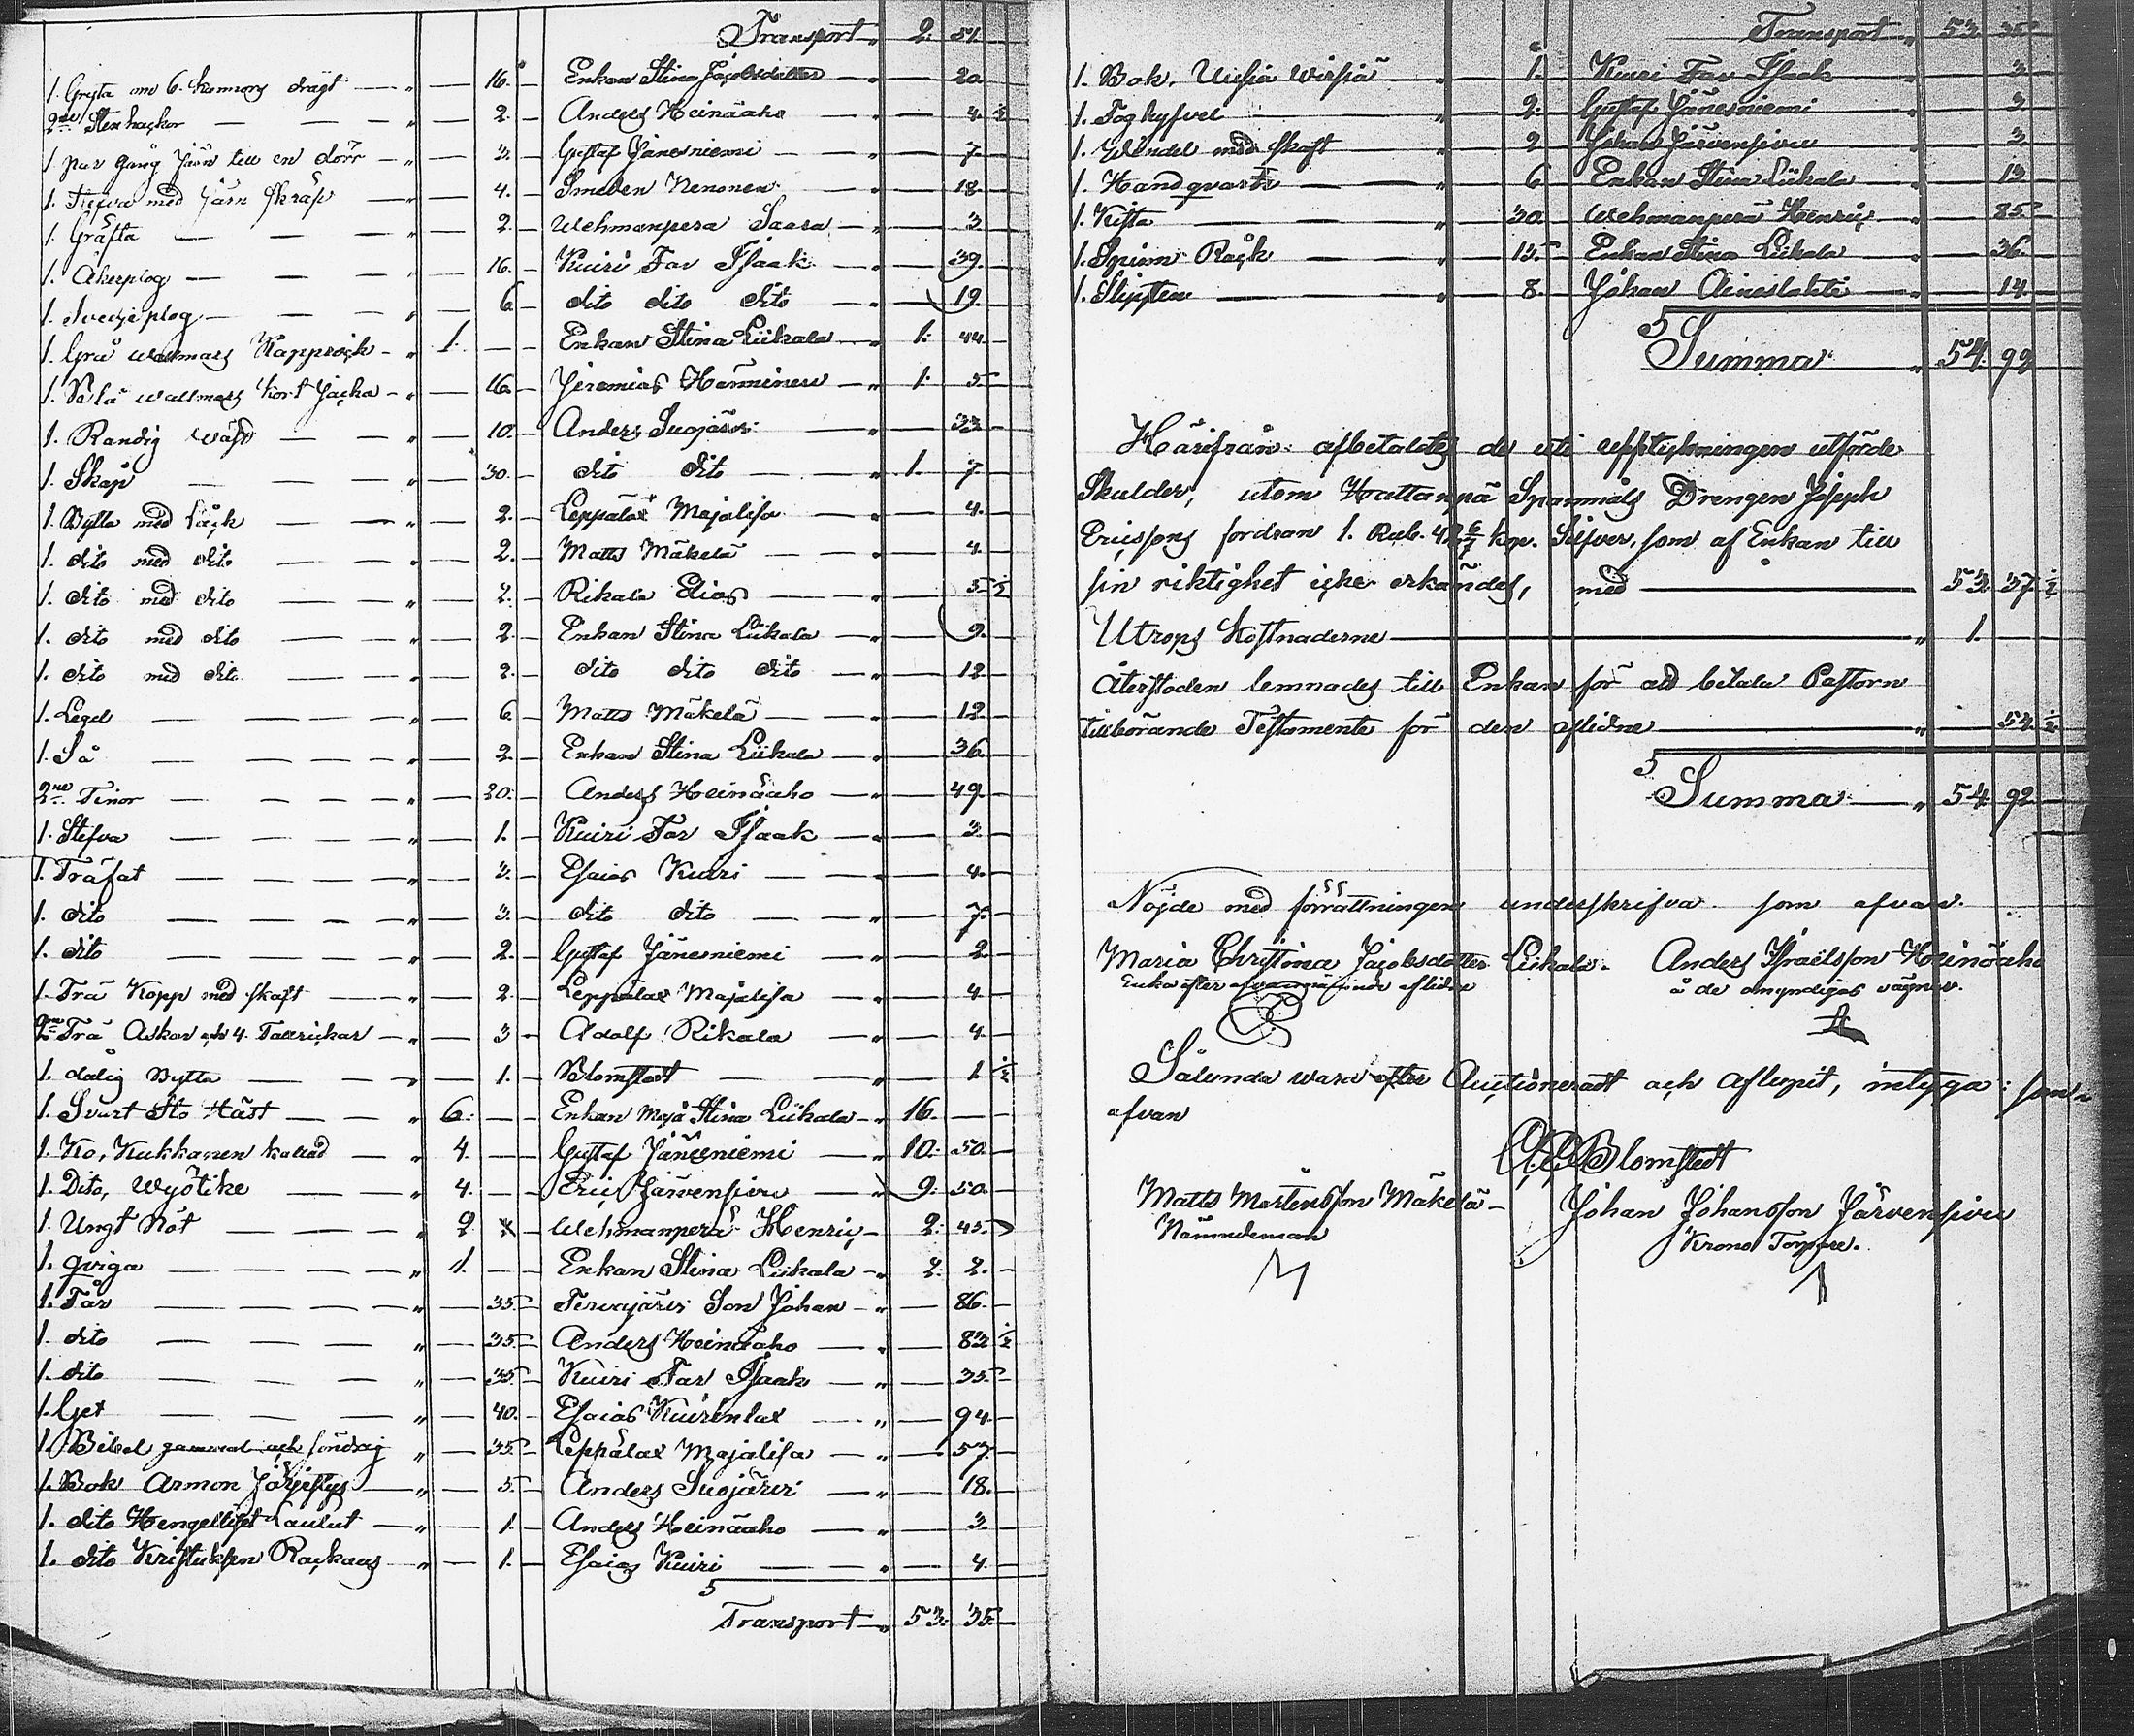 Transport " 2. 51.
1. Gryta om 6. kannors drägt " — 16. Enkan Stina Jacobsdotter — 20.
2ne Stenhackor — " — 2. Anders Heinäaho — " — 4. ½
1. par gång Järn till en dörr — " — 3. Gustaf Jänesniemi — " — 7.
1. Stefva med Järn skräp — " — 4. Smeden Nenonen — " — 18.
1. Gräfta — " — 2. Wehmanpera Saara — " — 3
1. Åkerplog — " — 16. Kuiri Far Isaak — " — 39.
1. Svedjeplog — " — 6. dito dito dito — " — 19.
1. Grå wallmars Kapprock — " 1. — Enkan Stina Liikala — " 1. 44.
1. Blå wallmars kort Jacka — " — 16. Jeremias Hänninen — " 1. 5.
1. Randig wäst — " — 10. Anders Suojärvi — 33
1. Skåp — " — 30. dito dito — " 1. 7
1. Bytta med Låck — " — 2. Leppälax Majalisa — " — 4.
1. dito med dito — " — 2. Matts Mäkelä — " — 4.
1. dito med dito — " — 2. Rikala Elias — " — 5 ½
1. dito med dito — " — 2. Enkan Stina Liikala — " — 9.
1. dito med dito — " — 2. dito dito dito — " — 12.
1. Legel — " — 6. Matts Mäkelä — " — 12.
1. Så — " — 2. Enkan Stina Liikala — " — 36.
2ne Tinor — " — 20. Anders Heinäaho — " — 49.
1. Stefva — " — 1. Kuiri Far Isaak — " — 3.
1. Träfat — " — 3. Esaias Kuiri — " — 4.
1. dito — " — 3. dito dito — " — 7.
1. dito — " — 2. Gustaf Jänesniemi — " — 2.
1. Trä Kopp med skaft — " — 2. Leppälax Majalisa — " — 4.
2ne Trä Askar och 4. Tallrickar — " — 3 Adolf Rikala — " — 4.
1. dålig Bytta — " — 1. Blomstedt — " — 1 ½
1. Svart Sto Häst — " 6. — Enkan Maja Stina Liikala — " 16. —
1. Ko, Kukkanen kallad — " 4. — Gustaf Jänesniemi — " 10. 50.
1. Dito, Wyötike — " 4. — Eric Järvensivu — " 9. 50.
1. Ungt Nöt — " 2 Wehmanperä Henric — 2. 45.
1. qviga — " 1. — Enkan Stina Liikala — " 2. 2.
1. Får — " — 35. Tervajärvi Son Johan — " — 86.
1. dito — " — 35. Anders Heinäaho — " — 83 ½
1. dito — " — 35. Kuiri Far Isaak — " — 35.
1. Get — " — 40. Esaias Kuirinlax — " — 94.
1. Bibel gammal och söndrig " — 35. Leppälax Majalisa — " — 57.
1. Bok Armon Järjestys — " — 5. Anders Suojärvi — " — 18.
1. dito Hengelliset Laulut — " — 1. Anders Heinäaho — " — 3.
1. dito Kristuksen Rackaus — " — 1. Esaias Kuiri — " — 4.
Transport " 53. 35.
Transport " 53. 35
1. Bok, Uusia wirsiä " 1. Kuiri Far Isaak 3
1. Toghyfvel " 2. Gustaf Jänesniemi 3.
1. Windel med skaft " 2 Johan Järvensivu 3
1. Handqvarn " 6 Enkan Stina Liikala 13
1. Kista " 30. Wehmanperä Henric 85
1. Spinn Råck " 15. Enkan Stina Liikala 36.
1. Slipsten " 8. Johan Aineslahti 14.
Summa " 54. 92
Härifrån afbetaltes de uti uppteckningen utförde
Skulder, utom Hattanpä Spanmåls Drengen Joseph
Ericssons fordran 1. Rub. 42 6/7 kop. Silfver, som af Enkan till
sin riktighet icke erkändes, med — 53. 37. ½
Utrops Kostnaderne — " 1.
Återstoden lemnades till Enkan för att betala Pastorn
tillhörande Testamente för den aflidne — " 54. ½
Summa — " 54. 92
Nöjde med förrättningen underskrifva som ofvan.
Maria Christina Jacobsdotter Liikala. Anders Israelsson Heinäaho
Enka efter ofvannämnde aflidne å de omyndigas vägnar.
Sålunda wara efter Auctioneradt och aflupit, intyga: som
ofvan
Blomstedt
Matts Mårtensson Mäkelä Johan Johansson Järvensivu
Nämndeman Krono Torpare.